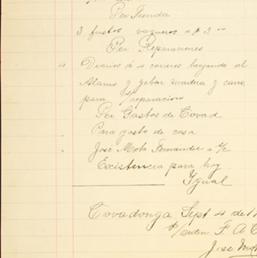 Por Tienda
3 fustes vaqueros a $ 3 --
Por Reparaciones
4 Diarios á 4 carros trayendo el
Alamo y gobar madera y carros
para reparacion
Por Gastos de Covad
Para gasto de casa
Jose Mota Fernandez a/c
Existencia para hoy
Igual
Covadonga Sept 4 de 1
F. A. C
Jose